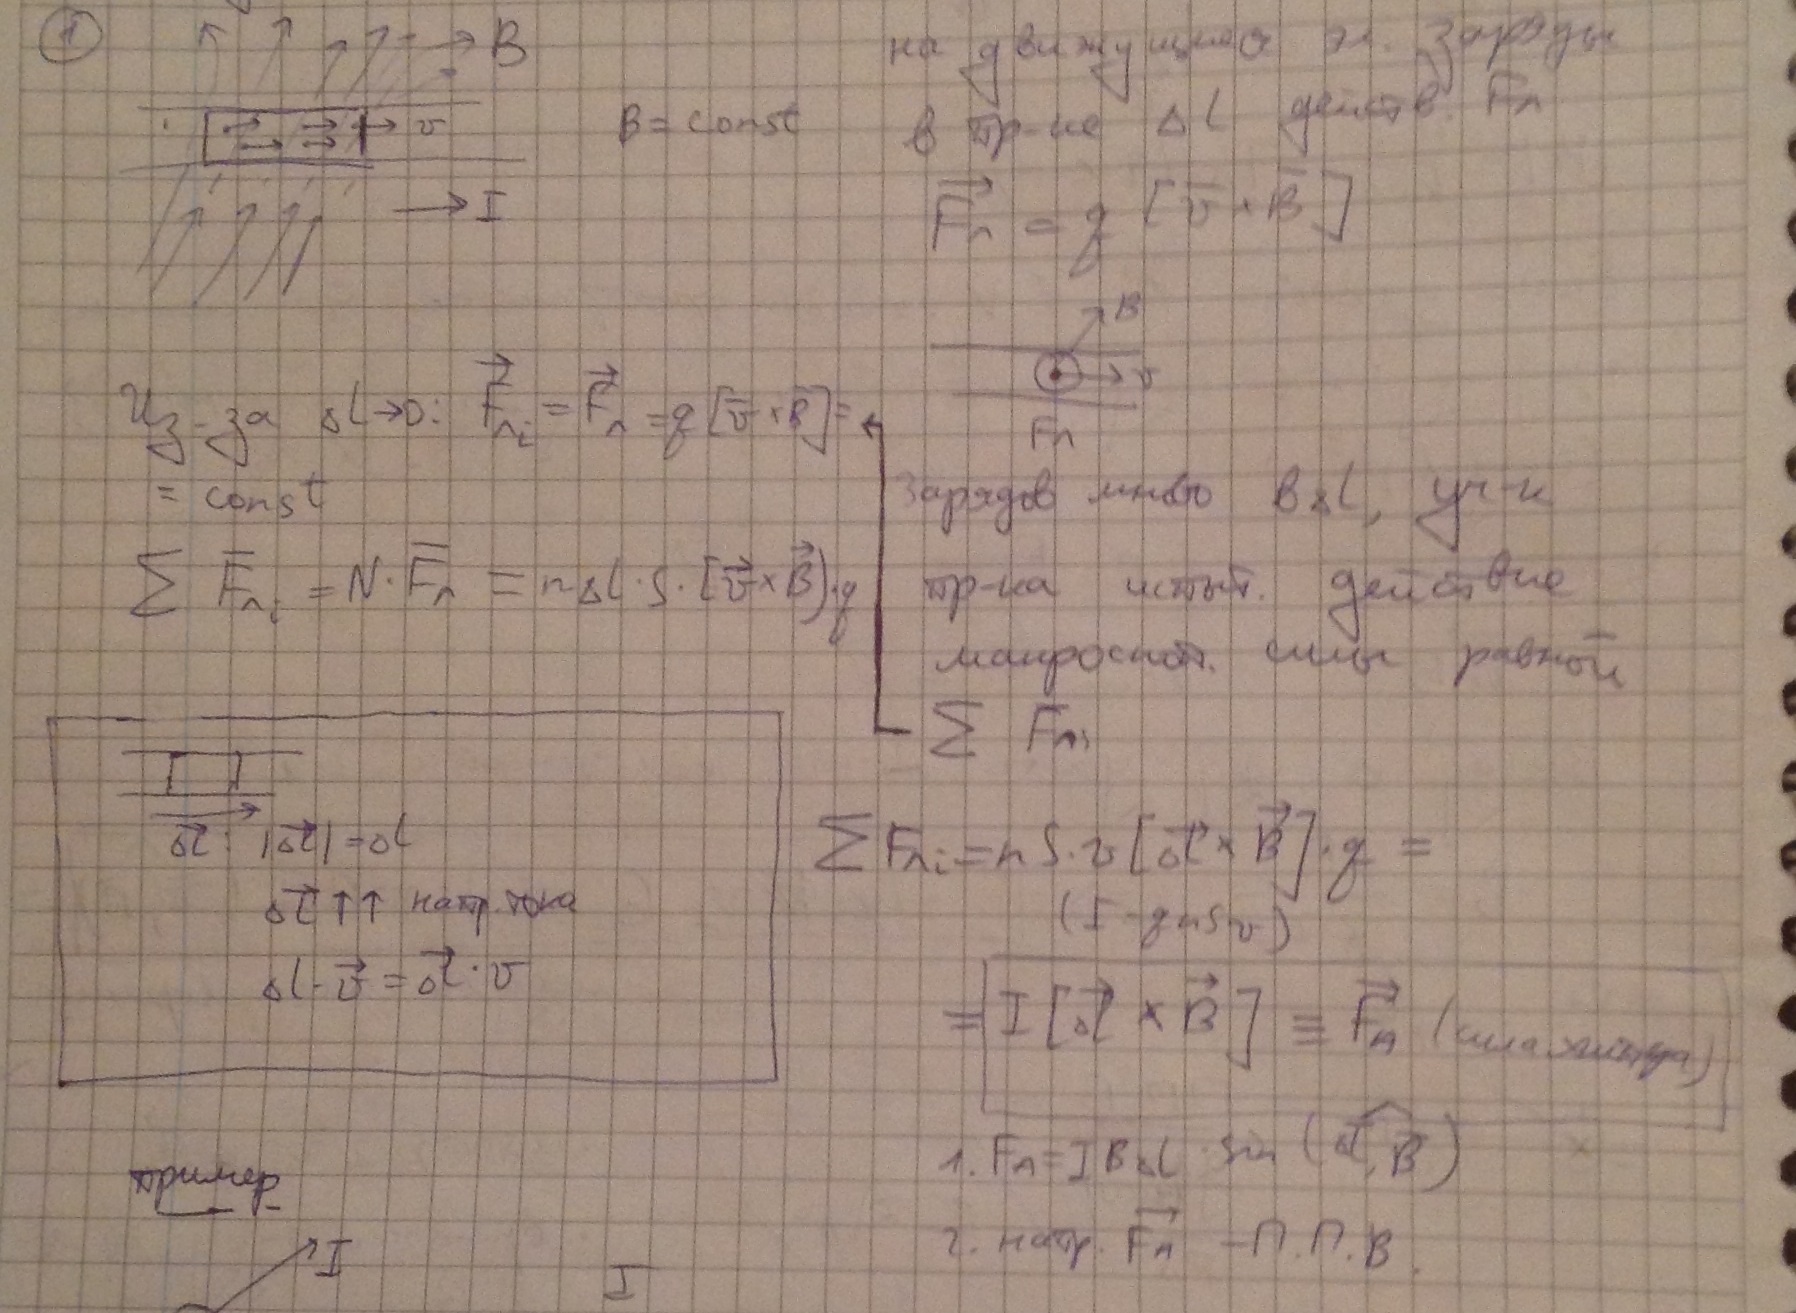 1
B
v
B = const
I
на движущиеся эл. заряды
в пр-ке Δl действ. Fл
F⃗л = q [v̄ × B̄]
B
v
Fл
Из-за Δl→0: F⃗лi = F⃗л = q [v̄ × B̄] =
= const
∑ F̄лi = N · F̄л = nΔl · S · [v⃗ × B⃗] · q
зарядов много в Δl, уч-к
пр-ка испыт. действие
макроскоп. силы равной
∑ F̄лi
Δl⃗ : |Δl⃗| = Δl
Δl⃗ ↑↑ напр. тока
Δl · v⃗ = Δl⃗ · v
∑ Fлi = n S · v [Δl⃗ × B⃗] · q =
(I - qnSv)
= I [Δl⃗ × B⃗] ≡ F⃗А (сила Ампера)
1. FА = I B Δl · sin (Δl⃗, B⃗)
2. напр. F⃗А – П.П.В.
пример
I
I